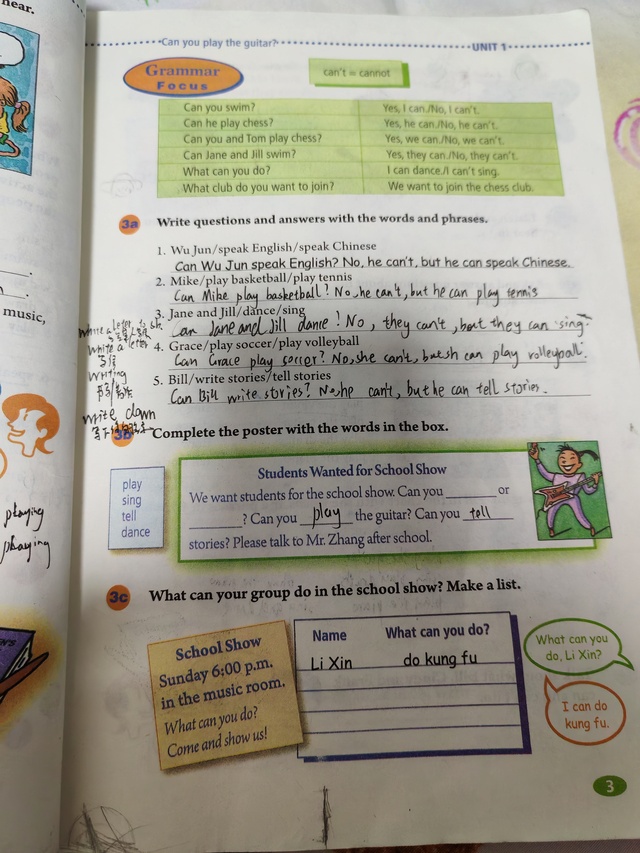 near.
Can you play the guitar?
UNIT 1
Grammar
Focus
can't = cannot
Can you swim? Yes, I can./No, I can't.
Can he play chess? Yes, he can./No, he can't.
Can you and Tom play chess? Yes, we can./No, we can't.
Can Jane and Jill swim? Yes, they can./No, they can't.
What can you do? I can dance./I can't sing.
What club do you want to join? We want to join the chess club.
3a Write questions and answers with the words and phrases.
1. Wu Jun/speak English/speak Chinese
Can Wu Jun speak English? No, he can't, but he can speak Chinese.
2. Mike/play basketball/play tennis
Can Mike play basketball? No, he can't, but he can play tennis
3. Jane and Jill/dance/sing
Can Jane and Jill dance? No, they can't, but they can sing.
4. Grace/play soccer/play volleyball
Can Grace play soccer? No, she can't, but sh can play volleyball.
5. Bill/write stories/tell stories
Can Bill write stories? No, he can't, but he can tell stories.
music,
write a letter to sb.
write a letter
写信
writing
write down
playing
playing
3b Complete the poster with the words in the box.
play
sing
tell
dance
Students Wanted for School Show
We want students for the school show. Can you ______ or
______? Can you play the guitar? Can you tell
stories? Please talk to Mr. Zhang after school.
3c What can your group do in the school show? Make a list.
School Show
Sunday 6:00 p.m.
in the music room.
What can you do?
Come and show us!
Name What can you do?
Li Xin do kung fu
What can you
do, Li Xin?
I can do
kung fu.
3